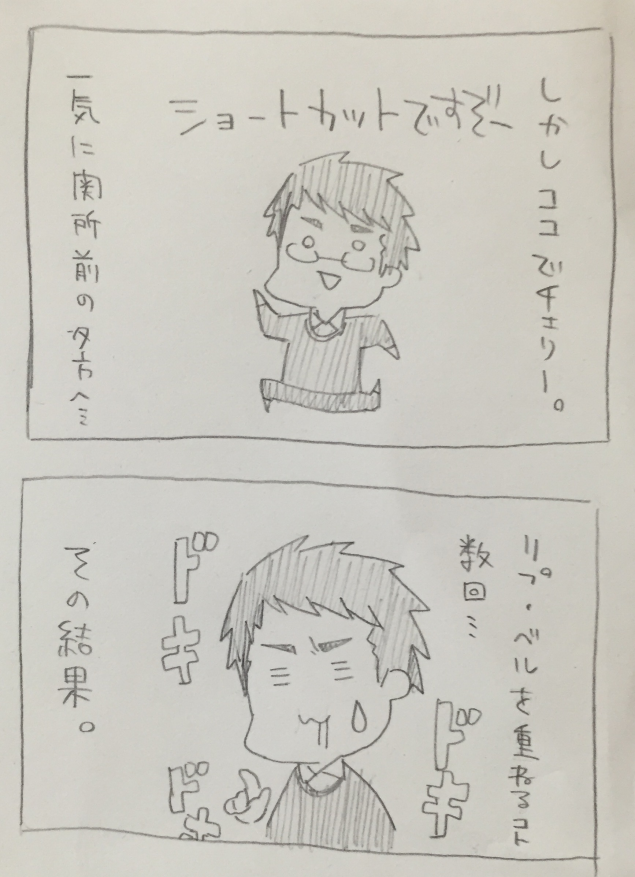 しかしココでチェリー。
ショートカットですぞー
一気に関所前の夕方へ…
リプ・ベルを重ねるコト
数回…
ドキ
ドキ
ドキ
その結果。